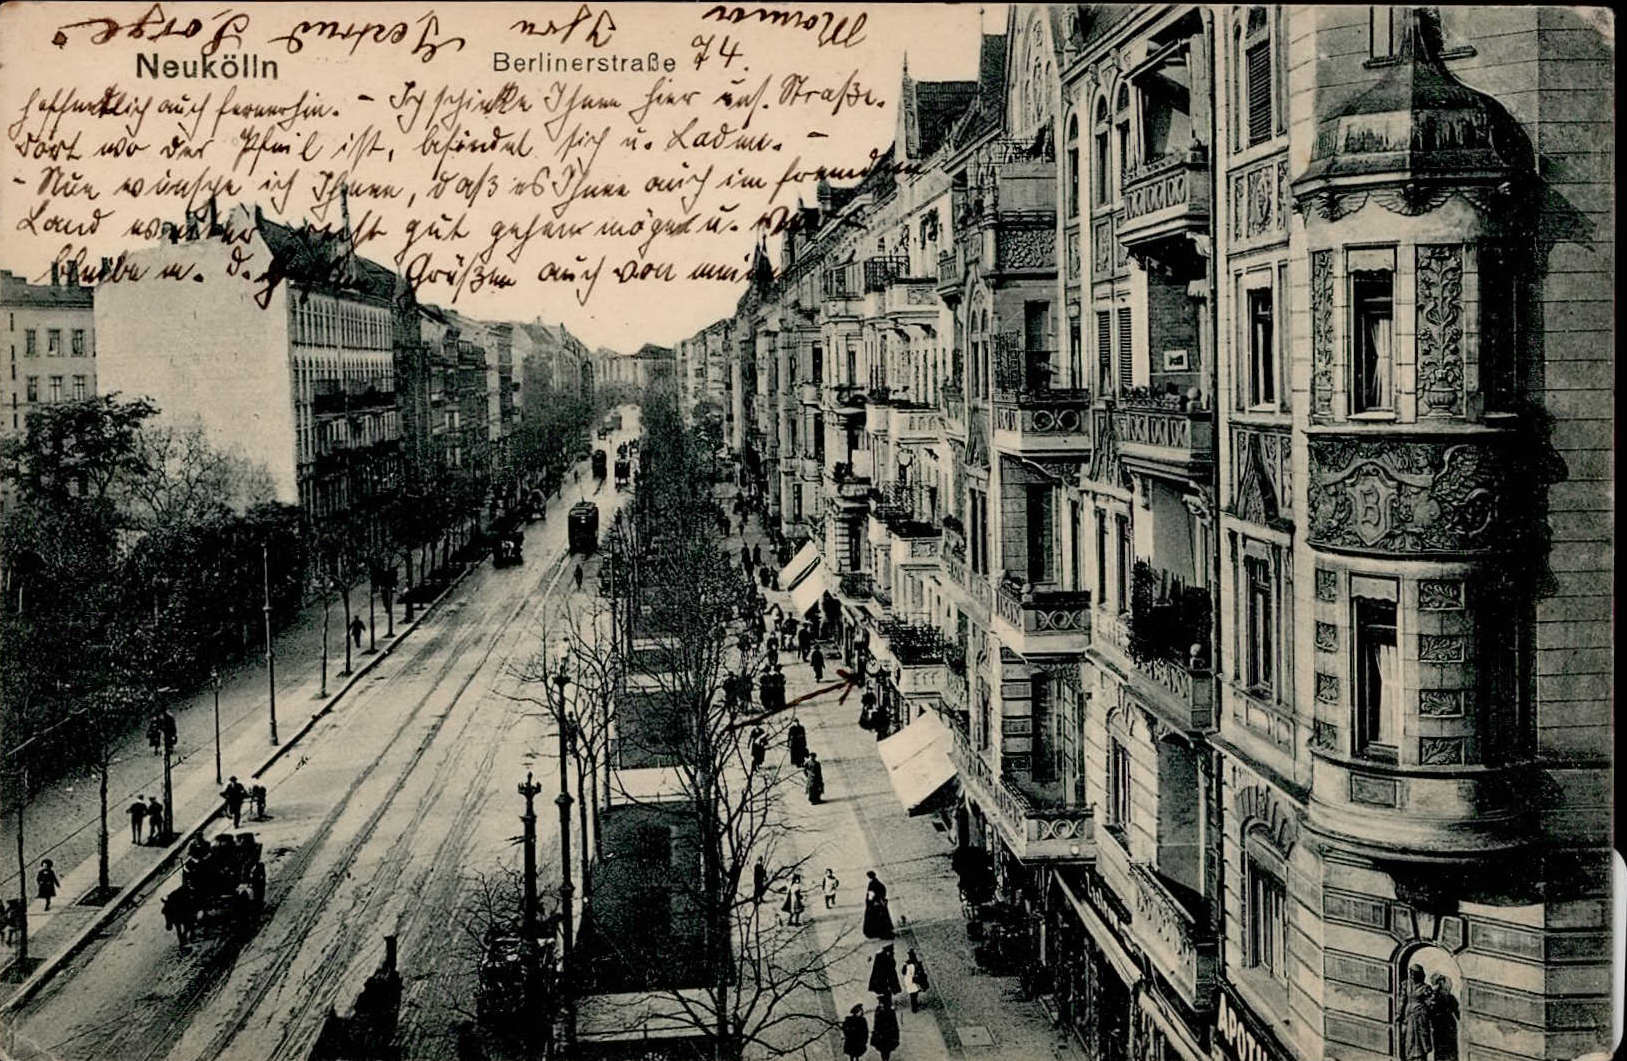 Neukölln
Berlinerstraße 74.
hoffentlich auch fernerhin. – Ich schicke Ihnen hier uns. Straße.
Dort wo der Pfeil ist, befindet sich u. Laden. –
– Nun wünsche ich Ihnen, daß es Ihnen auch im fremden
Land weiter recht gut gehen möge u.
bleibe m. d. Grüßen auch von meinem
Manne Ihre Gertrud Sorge
B
APOTH